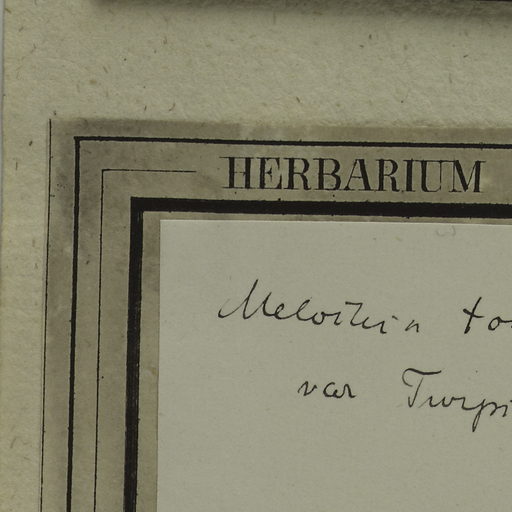 HERBARIUM
Melothria to
var Turpi